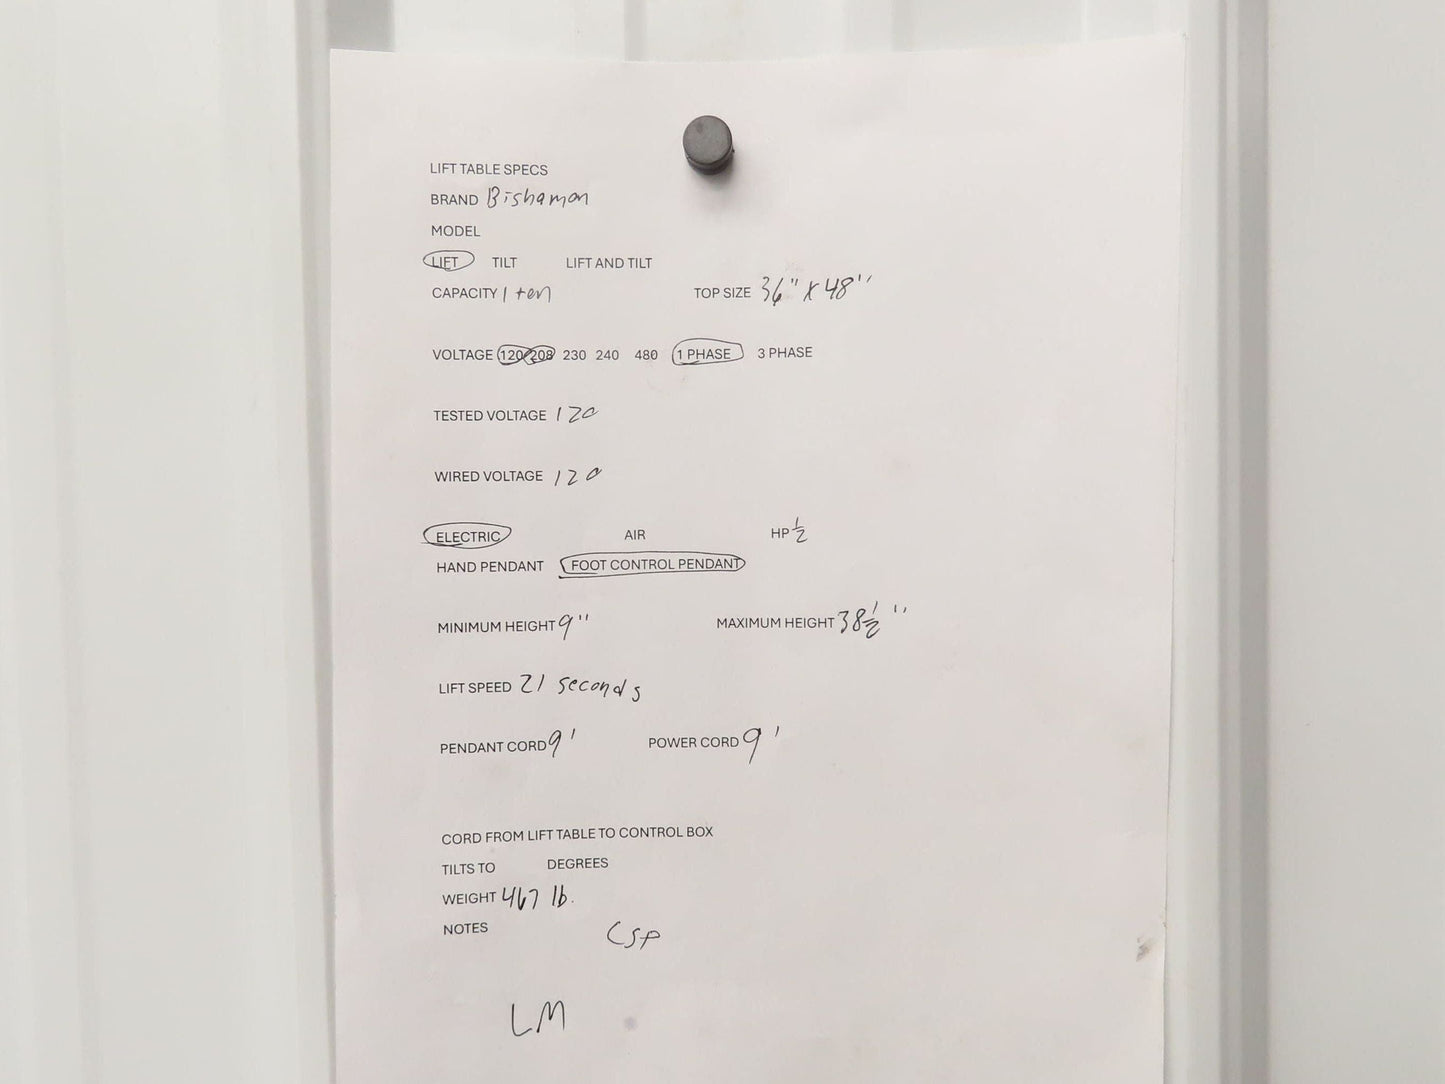 LIFT TABLE SPECS
BRAND Bishamon
MODEL
LIFT TILT LIFT AND TILT
CAPACITY 1 ton TOP SIZE 36" X 48"
VOLTAGE 120 208 230 240 480 1 PHASE 3 PHASE
TESTED VOLTAGE 120
WIRED VOLTAGE 120
ELECTRIC AIR HP 1/2
HAND PENDANT FOOT CONTROL PENDANT
MINIMUM HEIGHT 9" MAXIMUM HEIGHT 38 1/2"
LIFT SPEED 21 seconds
PENDANT CORD 9' POWER CORD 9'
CORD FROM LIFT TABLE TO CONTROL BOX
TILTS TO DEGREES
WEIGHT 467 lb.
NOTES CSP
LM